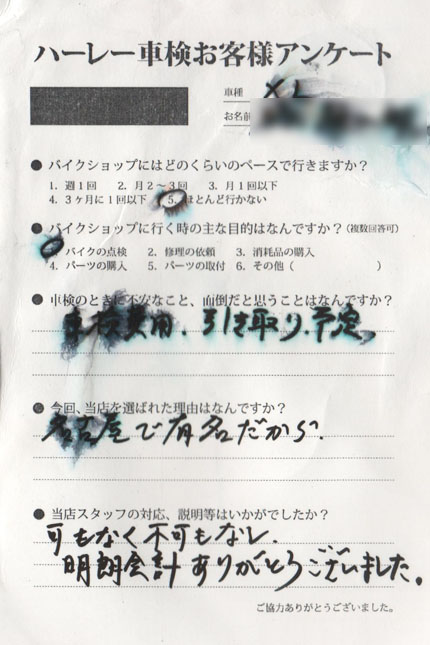 ハーレー車検お客様アンケート
車種 XL
お名前
● バイクショップにはどのくらいのペースで行きますか?
1. 週1回 2. 月2〜3回 3. 月1回以下
4. 3ヶ月に1回以下 5. ほとんど行かない
● バイクショップに行く時の主な目的はなんですか?(複数回答可)
バイクの点検 2. 修理の依頼 3. 消耗品の購入
4. パーツの購入 5. パーツの取付 6. その他( )
● 車検のときに不安なこと、面倒だと思うことはなんですか?
車検費用、引き取り、予定、
● 今回、当店を選ばれた理由はなんですか?
名古屋で有名だから、
● 当店スタッフの対応、説明等はいかがでしたか?
可もなく不可もなし、
明朗会計ありがとうございました。
ご協力ありがとうございました。